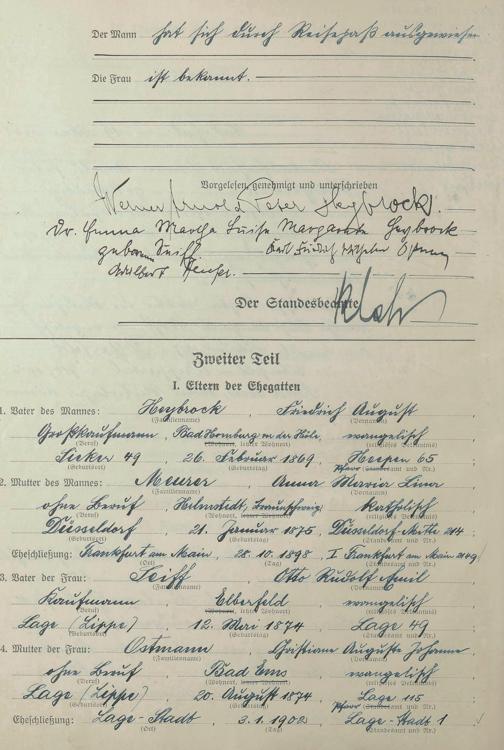 Der Mann hat sich durch Reisepaß ausgewiesen
Die Frau ist bekannt.
Vorgelesen, genehmigt und unterschrieben
Werner Arnold Peter Heybrock.
Dr. Emma Martha Luise Margarete Heybrock
geborene Seiff. Karl Friedrich Wilhelm
Adalbert
Der Standesbeamte
Zweiter Teil
I. Eltern der Ehegatten
1. Vater des Mannes: Heybrock, Friedrich August
(Familienname) (Vornamen)
Großkaufmann, Bad Homburg v. der Höhe, evangelisch
(Beruf) (Wohnort, letzter Wohnort) (religiöses Bekenntnis)
Sieker 49 26. Februar 1869, Heepen 65
(Geburtsort) (Geburtstag) Pfarr (Standesamt und Nr.)
2. Mutter des Mannes: Meurer, Anna Maria Lina
(Familienname) (Vornamen)
ohne Beruf, Helmstedt, Braunschweig, katholisch
(Beruf) (Wohnort, letzter Wohnort) (religiöses Bekenntnis)
Düsseldorf, 21. Januar 1875, Düsseldorf-Mitte 214
(Geburtsort) (Geburtstag) (Standesamt und Nr.)
Eheschließung: Frankfurt am Main, 28.10.1898, I Frankfurt am Main 2149
(Ort) (Tag) (Standesamt und Nr.)
3. Vater der Frau: Seiff, Otto Rudolf Emil
(Familienname) (Vornamen)
Kaufmann, Elberfeld, evangelisch
(Beruf) (Wohnort, letzter Wohnort) (religiöses Bekenntnis)
Lage (Lippe), 12. Mai 1874, Lage 49
(Geburtsort) (Geburtstag) (Standesamt und Nr.)
4. Mutter der Frau: Ostmann, Christiane Auguste Johanne
(Familienname) (Vornamen)
ohne Beruf, Bad Ems, evangelisch
(Beruf) (Wohnort, letzter Wohnort) (religiöses Bekenntnis)
Lage (Lippe), 20. August 1874, Lage 115
(Geburtsort) (Geburtstag) Pfarr (Standesamt und Nr.)
Eheschließung: Lage-Stadt, 3.1.1902, Lage-Stadt 1
(Ort) (Tag) (Standesamt und Nr.)